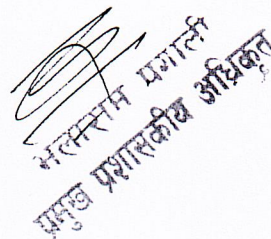 भलाराम पगाली
प्रमुख प्रशासकीय अधिकृत